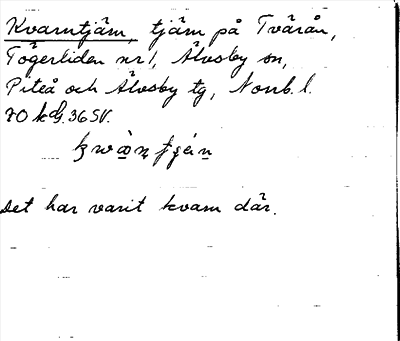 Kvarntjärn, tjärn på Tvärån,
Tögerliden nr 1, Älvsby sn,
Piteå och Älvsby tg, Norrb. l.
70 kg. 36 SV.
Det har varit kvarn där.